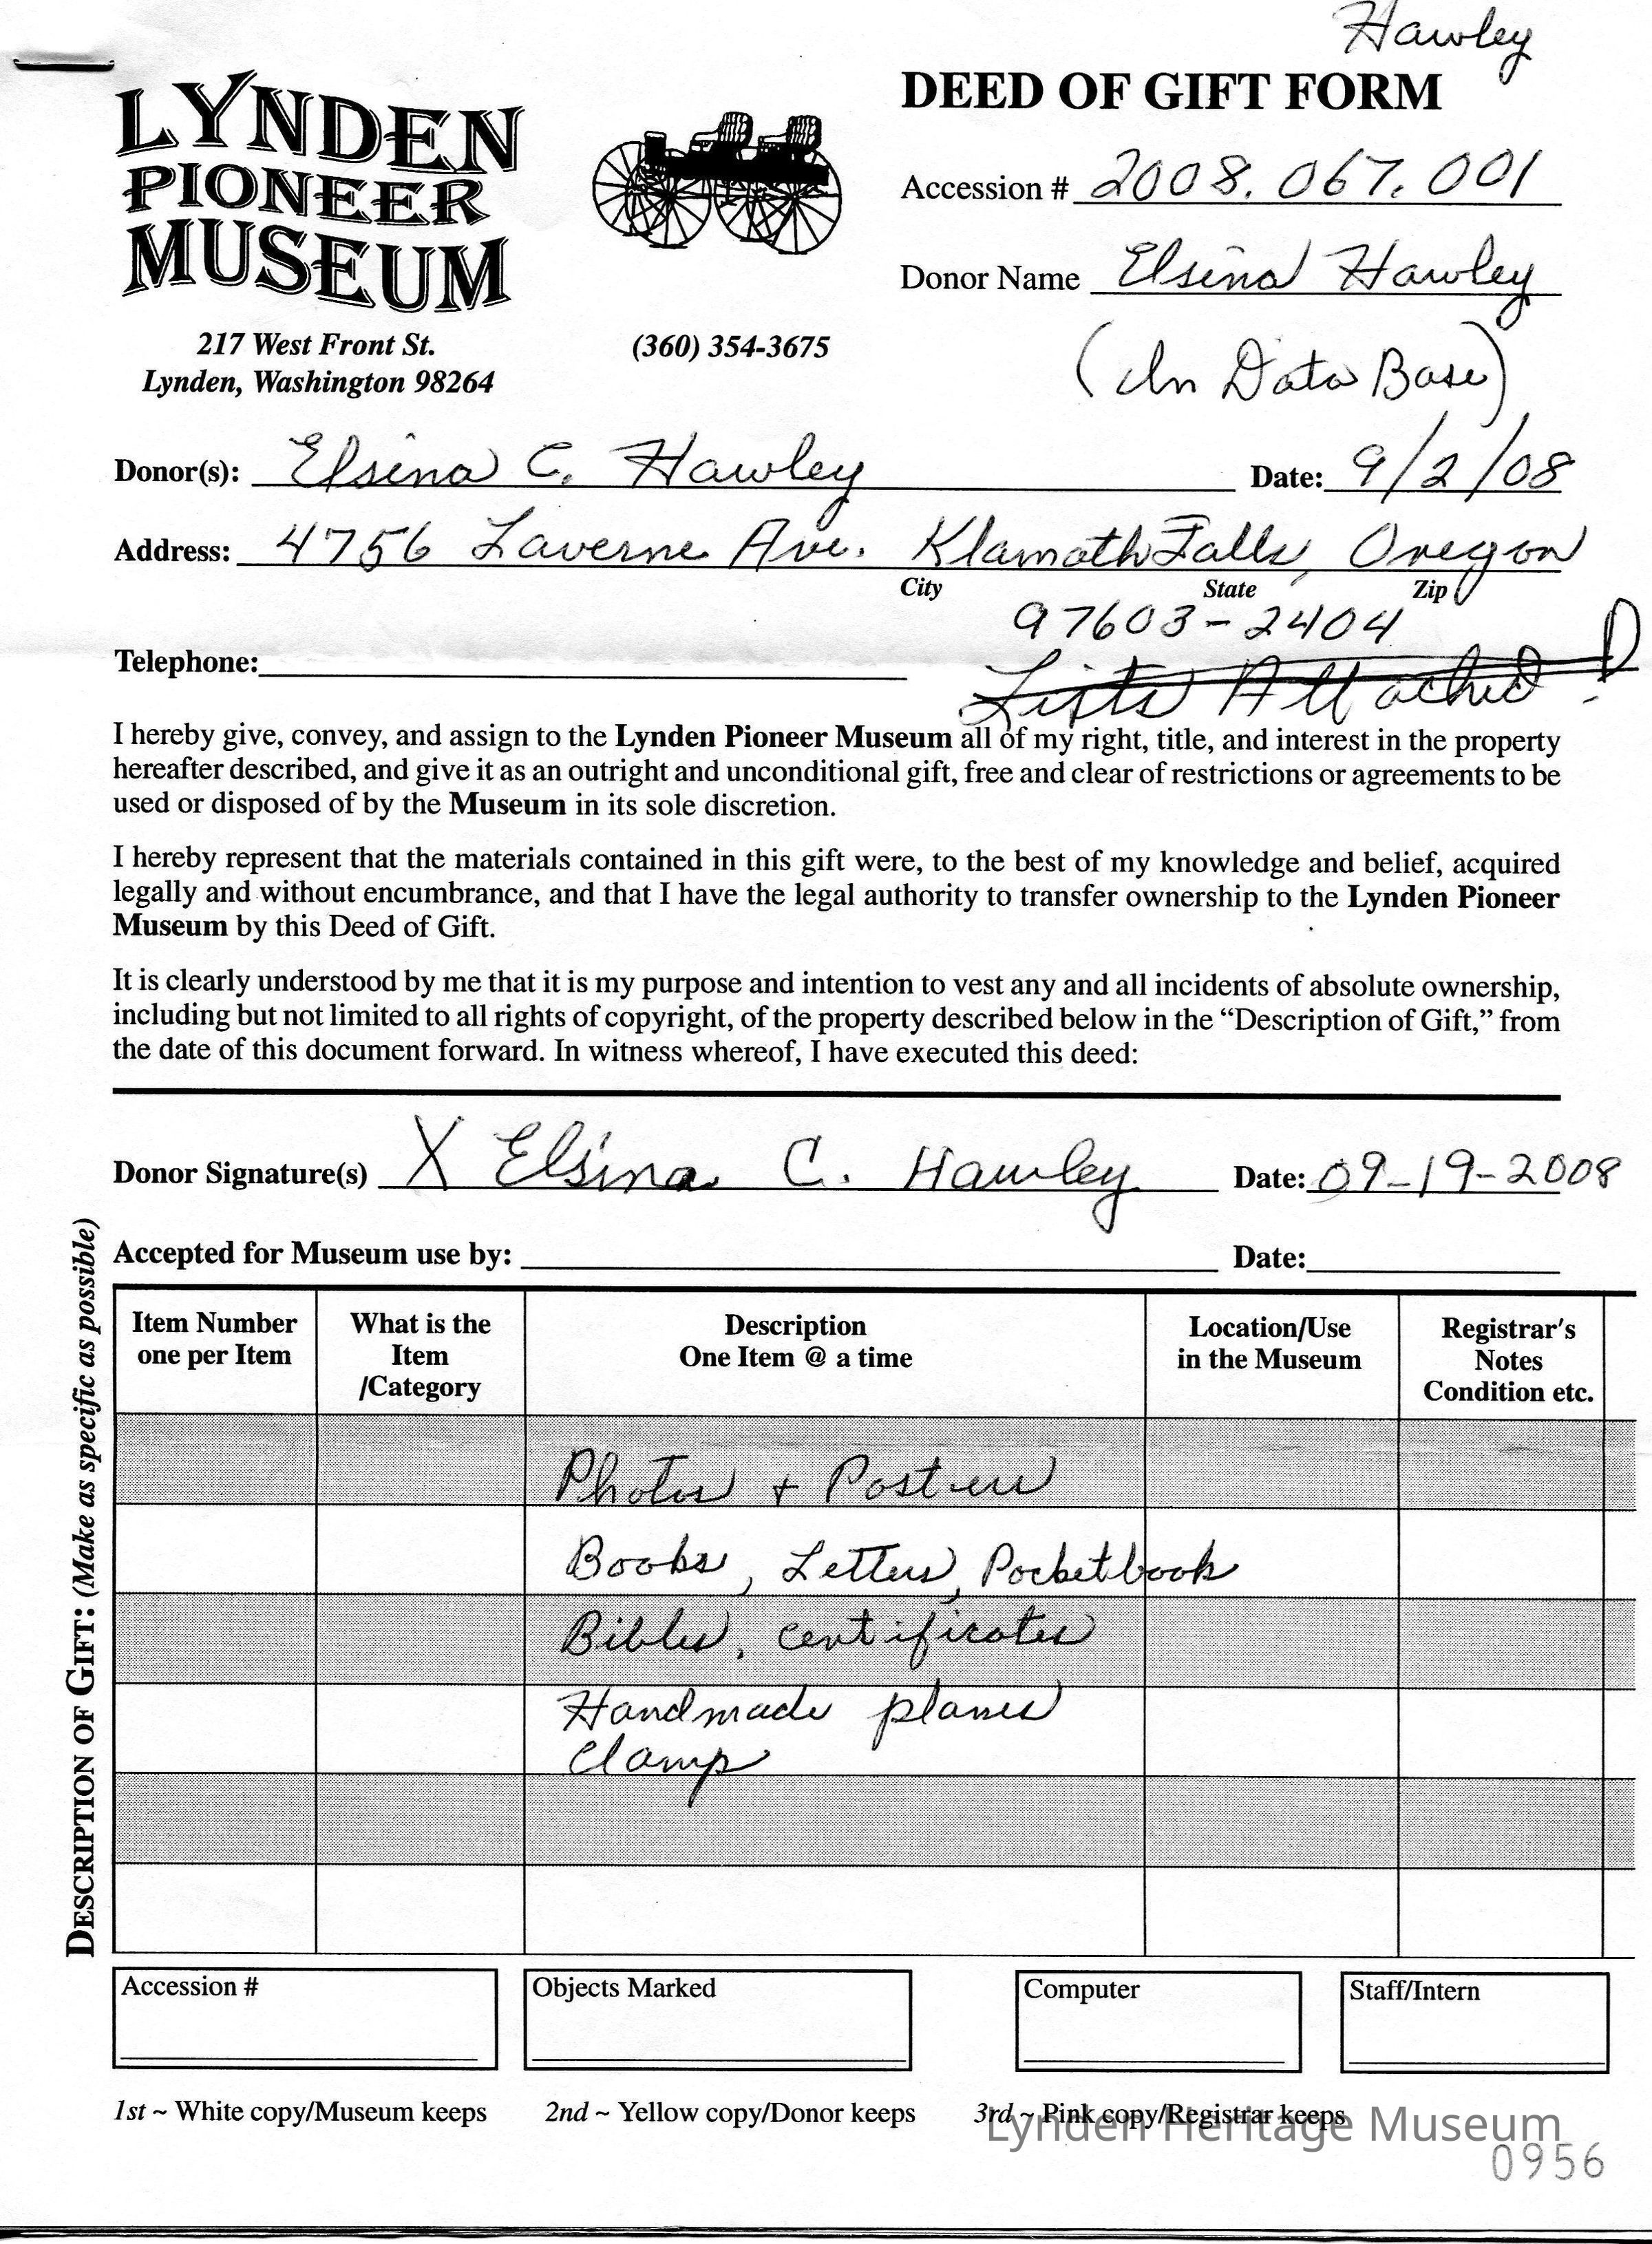 Hawley
LYNDEN
PIONEER
MUSEUM
217 West Front St.
Lynden, Washington 98264
(360) 354-3675
DEED OF GIFT FORM
Accession # 2008.067.001
Donor Name Elsina Hawley
(In Data Base)
Donor(s): Elsina C. Hawley Date: 9/2/08
Address: 4756 Laverne Ave. Klamath Falls, Oregon
City State Zip
97603-2404
Telephone:
Lists Attached
I hereby give, convey, and assign to the Lynden Pioneer Museum all of my right, title, and interest in the property
hereafter described, and give it as an outright and unconditional gift, free and clear of restrictions or agreements to be
used or disposed of by the Museum in its sole discretion.
I hereby represent that the materials contained in this gift were, to the best of my knowledge and belief, acquired
legally and without encumbrance, and that I have the legal authority to transfer ownership to the Lynden Pioneer
Museum by this Deed of Gift.
It is clearly understood by me that it is my purpose and intention to vest any and all incidents of absolute ownership,
including but not limited to all rights of copyright, of the property described below in the “Description of Gift,” from
the date of this document forward. In witness whereof, I have executed this deed:
Donor Signature(s) X Elsina C. Hawley Date: 09-19-2008
Accepted for Museum use by: Date:
DESCRIPTION OF GIFT: (Make as specific as possible)
Item Number
one per Item
What is the
Item
/Category
Description
One Item @ a time
Location/Use
in the Museum
Registrar's
Notes
Condition etc.
Photos + Posters
Books, Letters, Pocketbook
Bibles, certificates
Handmade planes
clamp
Accession #
Objects Marked
Computer
Staff/Intern
1st ~ White copy/Museum keeps
2nd ~ Yellow copy/Donor keeps
3rd ~ Pink copy/Registrar keeps
Lynden Heritage Museum
0956